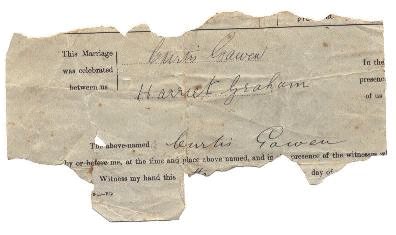 This Marriage Curtis Gawen In the
was celebrated presenc
between us Harriet Graham of us
The above-named Curtis Gowen
by or before me, at the time and place above named, and in presence of the witnesses w
Witness my hand this day of